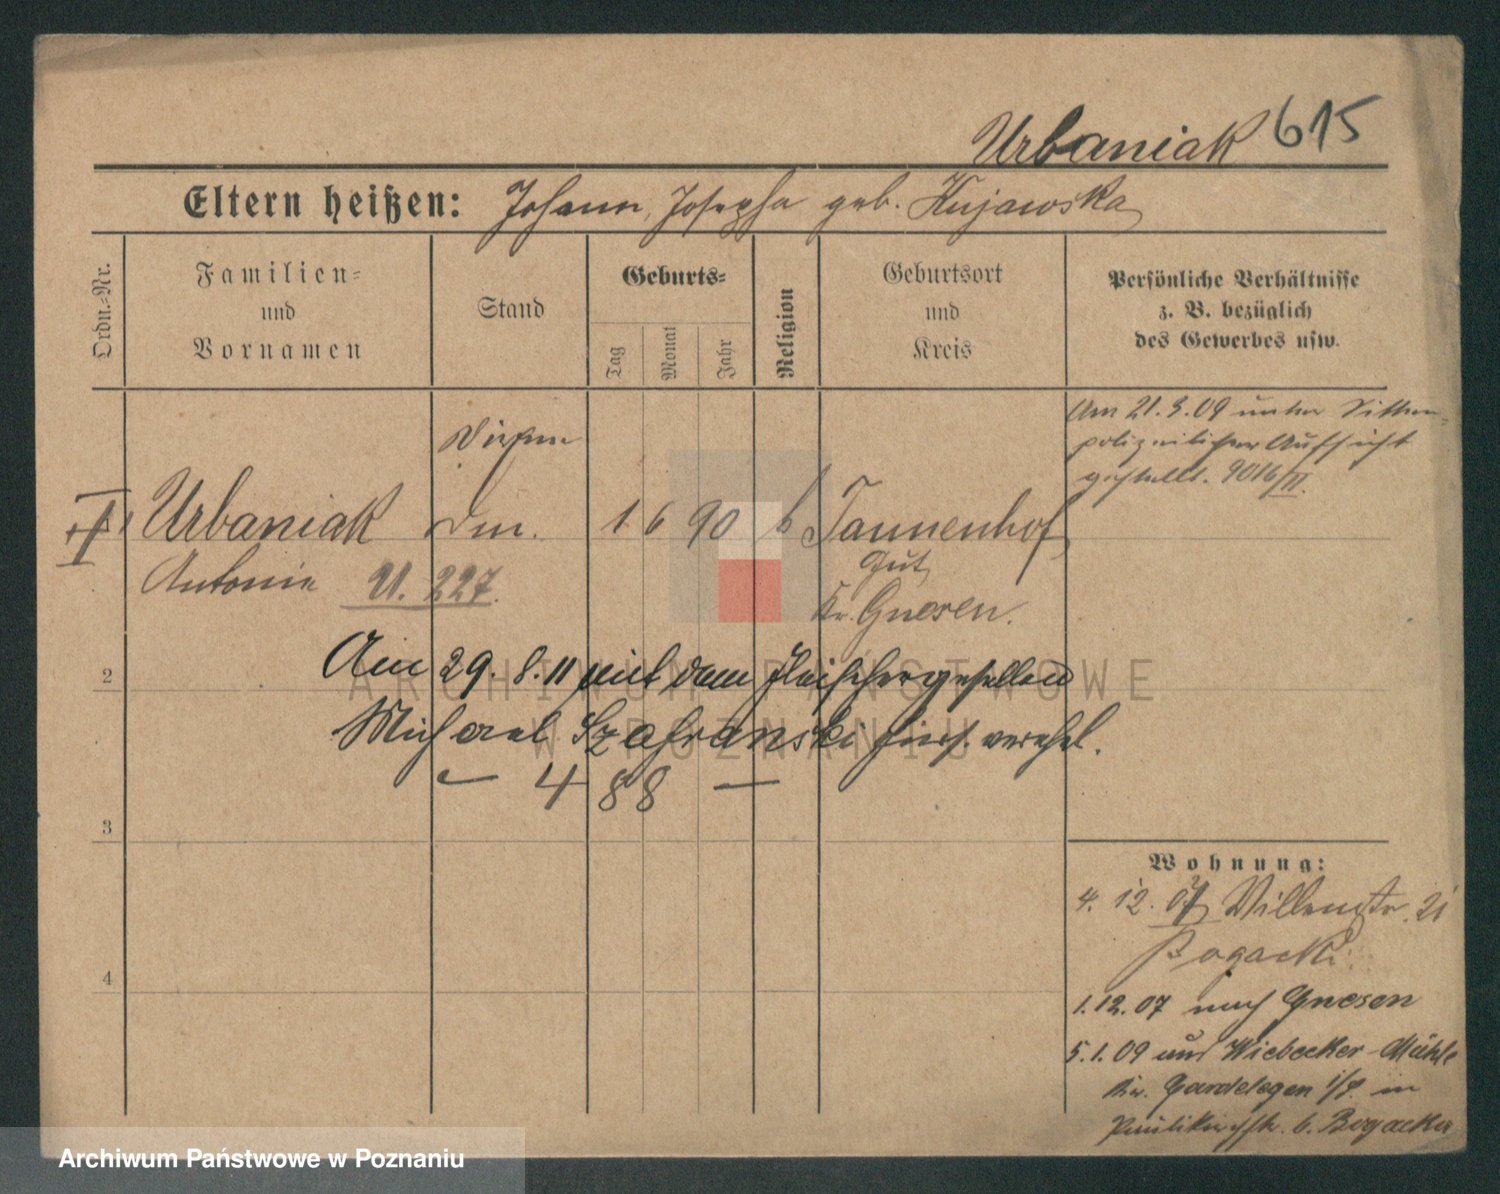 Urbaniak 615
Eltern heißen: Johann, Josepha geb. Kujawska
Ordn.-Nr.
Familien-
und
Vornamen
Stand
Geburts-
Tag
Monat
Jahr
Religion
Geburtsort
und
Kreis
Persönliche Verhältnisse
z. B. bezüglich
des Gewerbes usw.
Am 21.3.09 unter Sitten-
polizeilicher Aufsicht
gestellt. 9016/II.
Dirne
Urbaniak 1 6 90 k Tannenhof
Antonie U. 227. Gut
Kr. Gnesen.
2
Am 29.8.11 mit dem Fleischergesellen
Michael Szafranski hier verehel.
— 488 —
3
4
Wohnung:
4. 12. 07 Villenstr. 21
Bogacki.
1.12.07 nach Gnesen
5.1.09 aus Wiebecker-Mühle
Kr. Gardelegen in
Paulikirchstr. b. Bogacka
ARCHIWUM PAŃSTWOWE
W POZNANIU
Archiwum Państwowe w Poznaniu